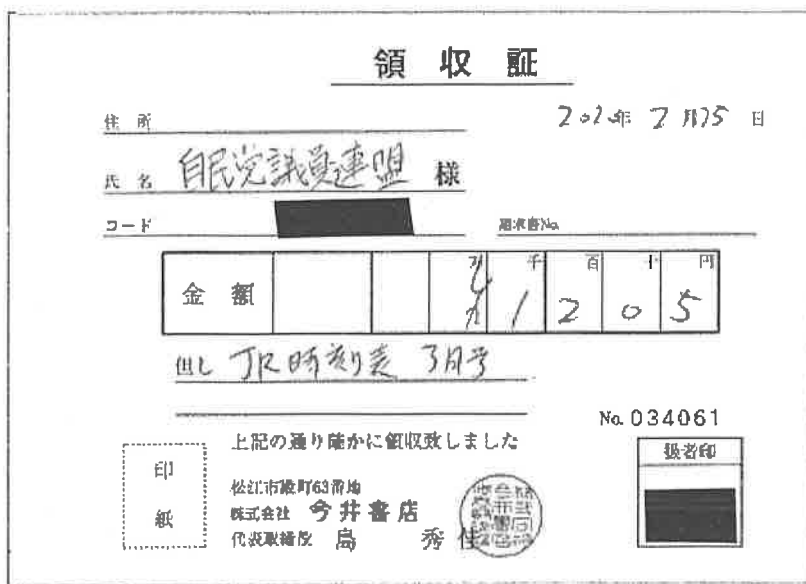 領収証
住所
2020年 2月25日
氏名 自民党議員連盟 様
コード
請求書No.
金額 万 千 百 十 円
¥ 1 2 0 5
但し JR時刻表 3月号
No. 034061
上記の通り確かに領収致しました
扱者印
印紙
松江市殿町63番地
株式会社 今井書店
代表取締役 島 秀佳